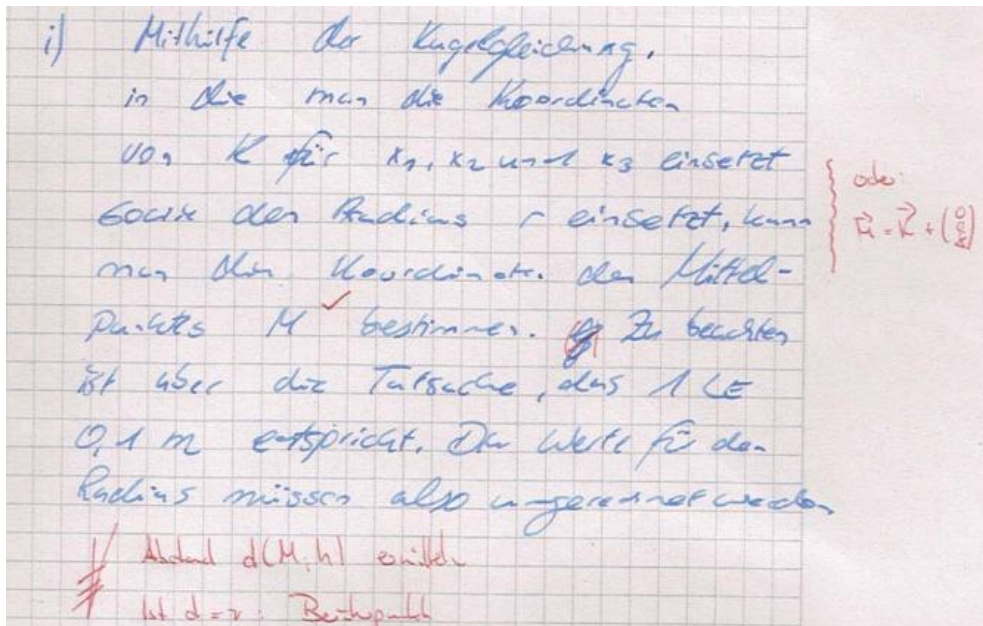 i) Mithilfe der Kugelgleichung,
in die man die Koordinaten
von K für x1, x2 und x3 einsetzt
sowie den Radius r einsetzt, kann
man die Koordinaten des Mittel-
punkts M bestimmen. Zu beachten
ist aber die Tatsache, das 1 LE
0,1 m entspricht. Die Werte für den
Radius müssen also umgerechnet werden
oder:
M⃗ = K⃗ +
Abstand d(M, h) ermitteln
Ist d = r : Berührpunkt